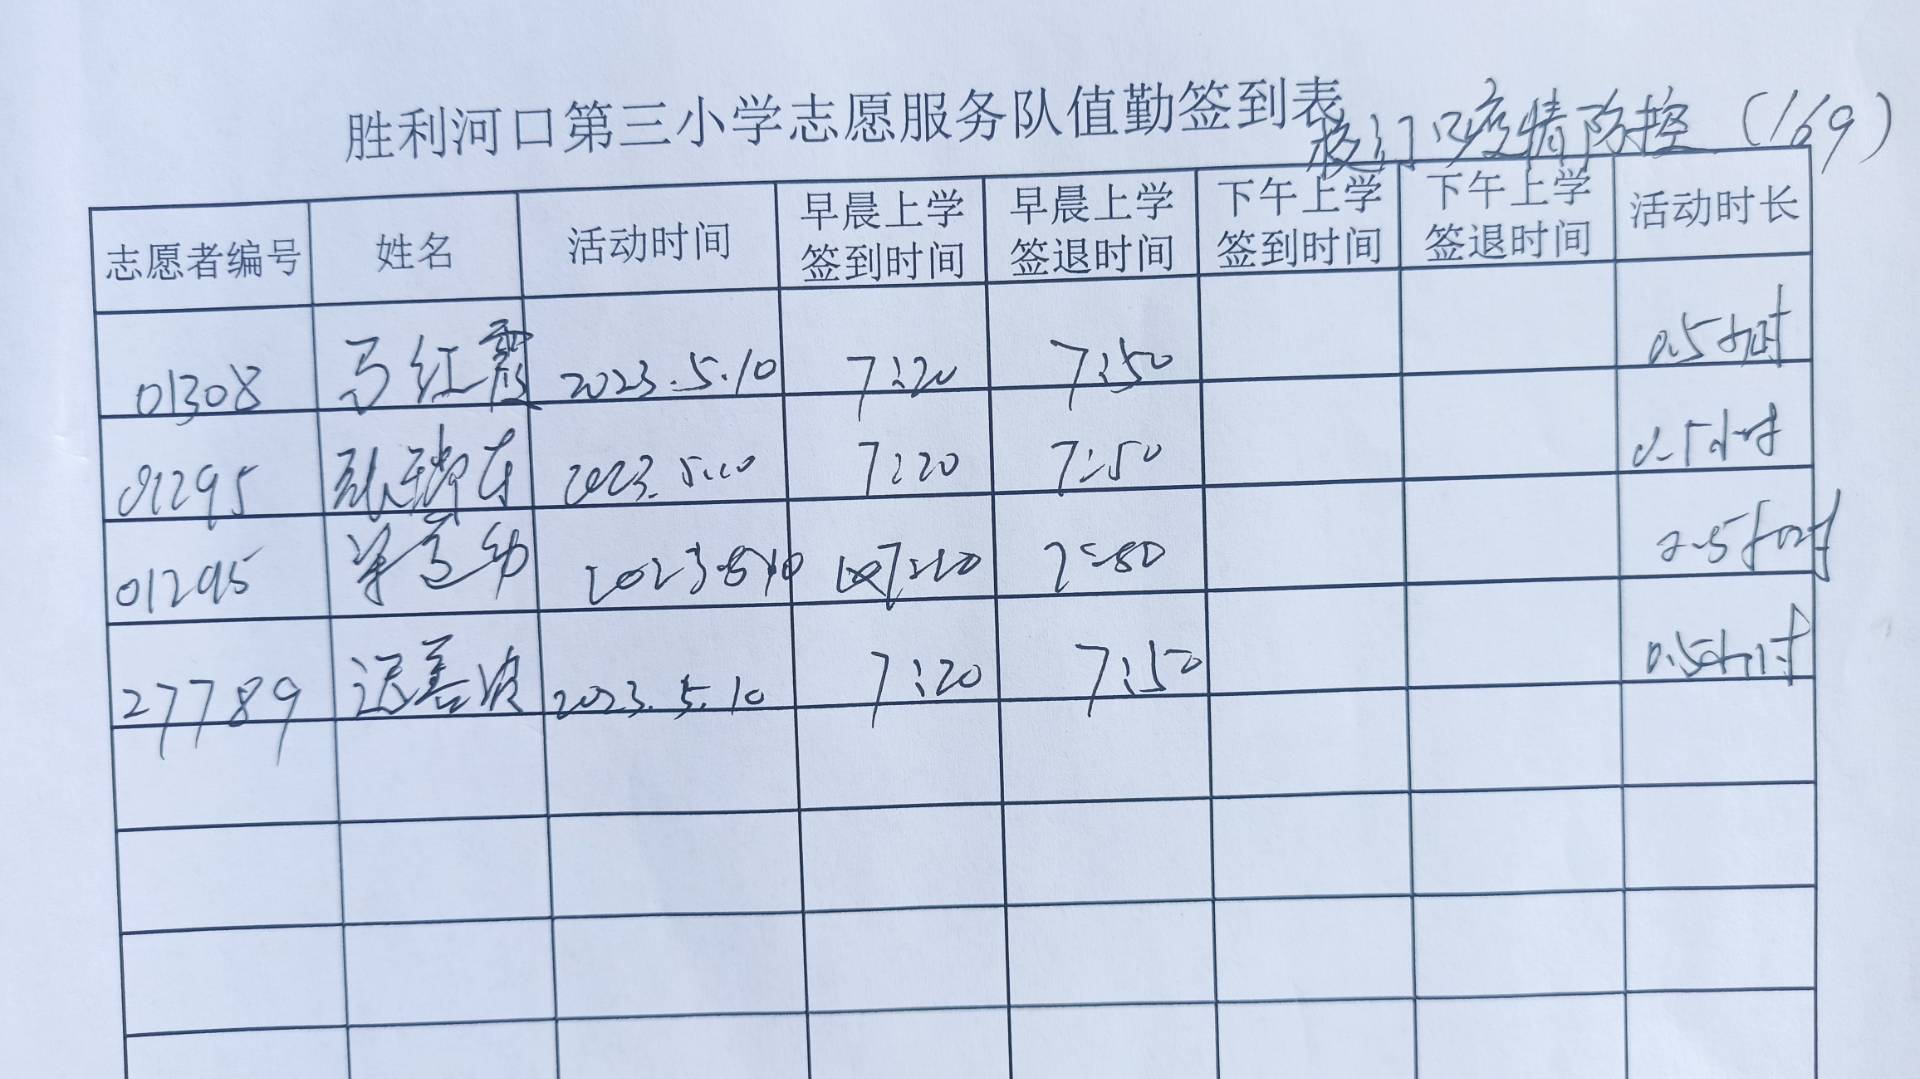 胜利河口第三小学志愿服务队值勤签到表 校门口疫情防控（169）
志愿者编号 姓名 活动时间 早晨上学签到时间 早晨上学签退时间 下午上学签到时间 下午上学签退时间 活动时长
01308 马红霞 2023.5.10 7:20 7:50 0.5小时
01295 2023.5.10 7:20 7:50 0.5小时
01295 2023.5.10 7:20 7:50 0.5小时
27789 迟善波 2023.5.10 7:20 7:50 0.5小时